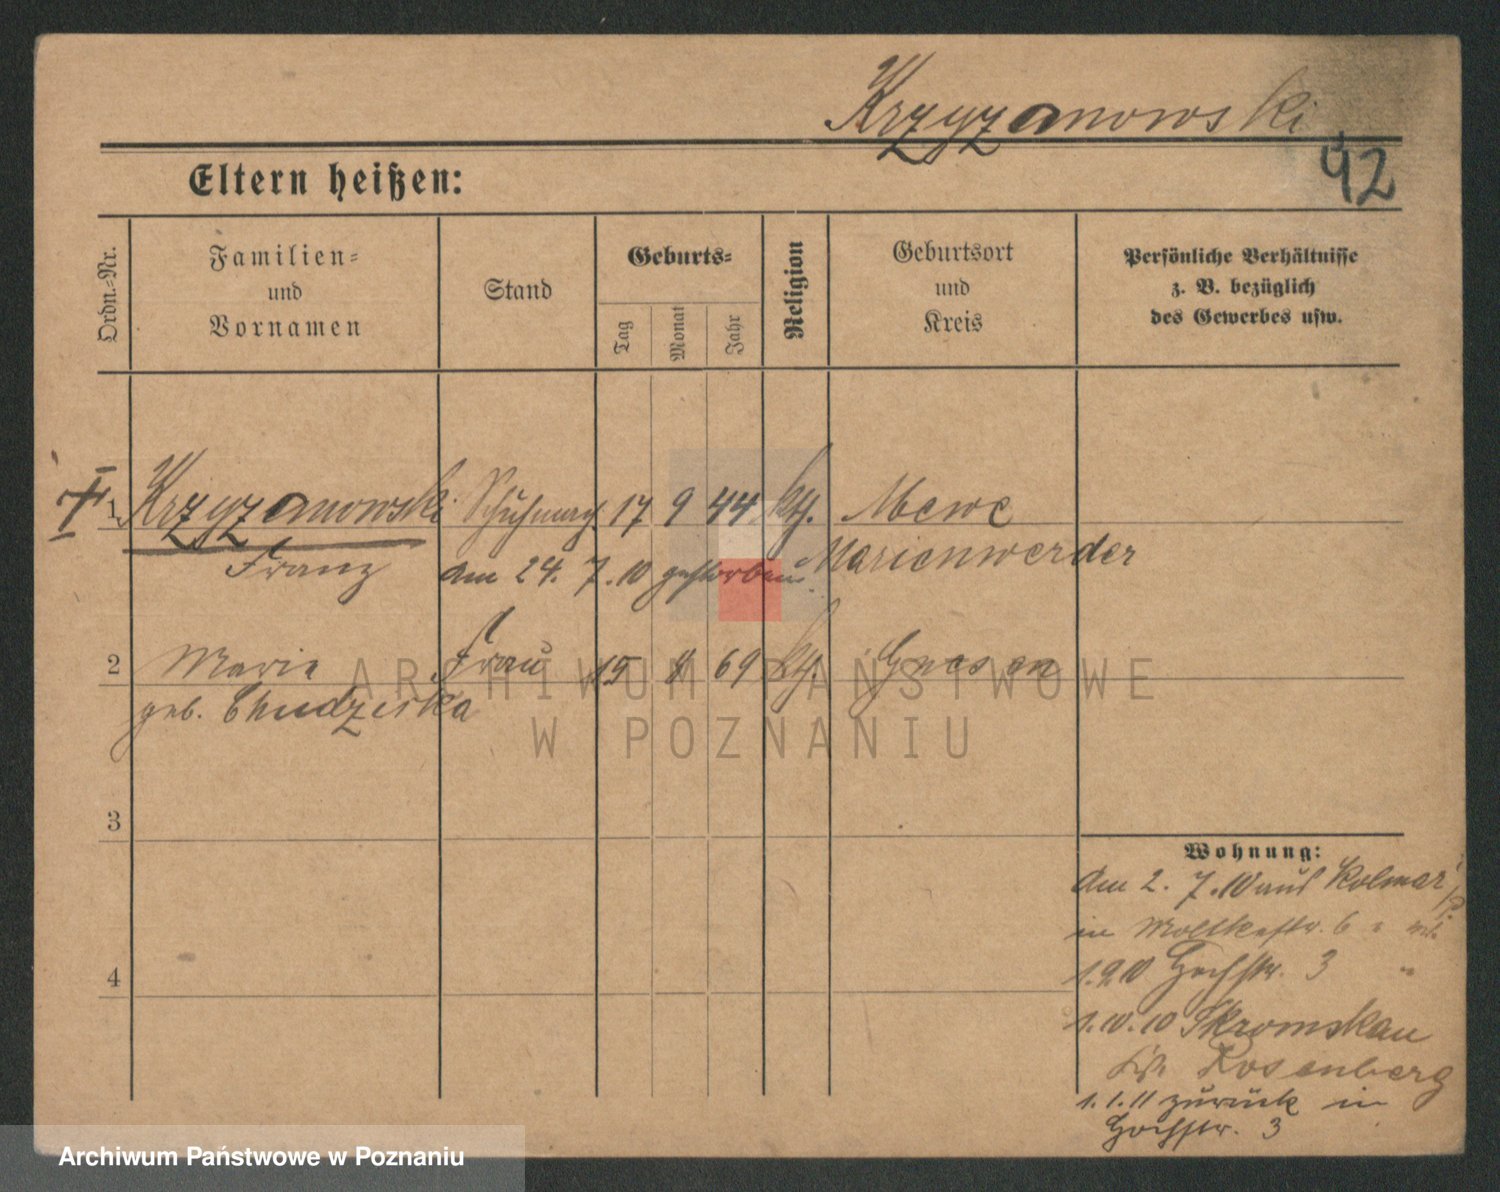 Krzyzanowski
42
Eltern heißen:
Ordn.-Nr.
Familien-
und
Vornamen
Stand
Geburts-
Tag
Monat
Jahr
Religion
Geburtsort
und
Kreis
Persönliche Verhältnisse
z. B. bezüglich
des Gewerbes usw.
1 Krzyzanowski Schuhmach. 17 9 44 kth. Mewe
Franz am 24. 7. 10 gestorben. Marienwerder
2 Marie Frau 15 8 69 kth. Gnesen
geb. Chudziska
3
4
Wohnung:
am 2. 7. 10 aus Kolmar i/P.
in Moltkestr. 6
1.9.10 Hochstr. 3 "
1.10.10 Skromskau
Rosenberg
1.1.11 zurück in
Hochstr. 3
ARCHIWUM PAŃSTWOWE
W POZNANIU
Archiwum Państwowe w Poznaniu